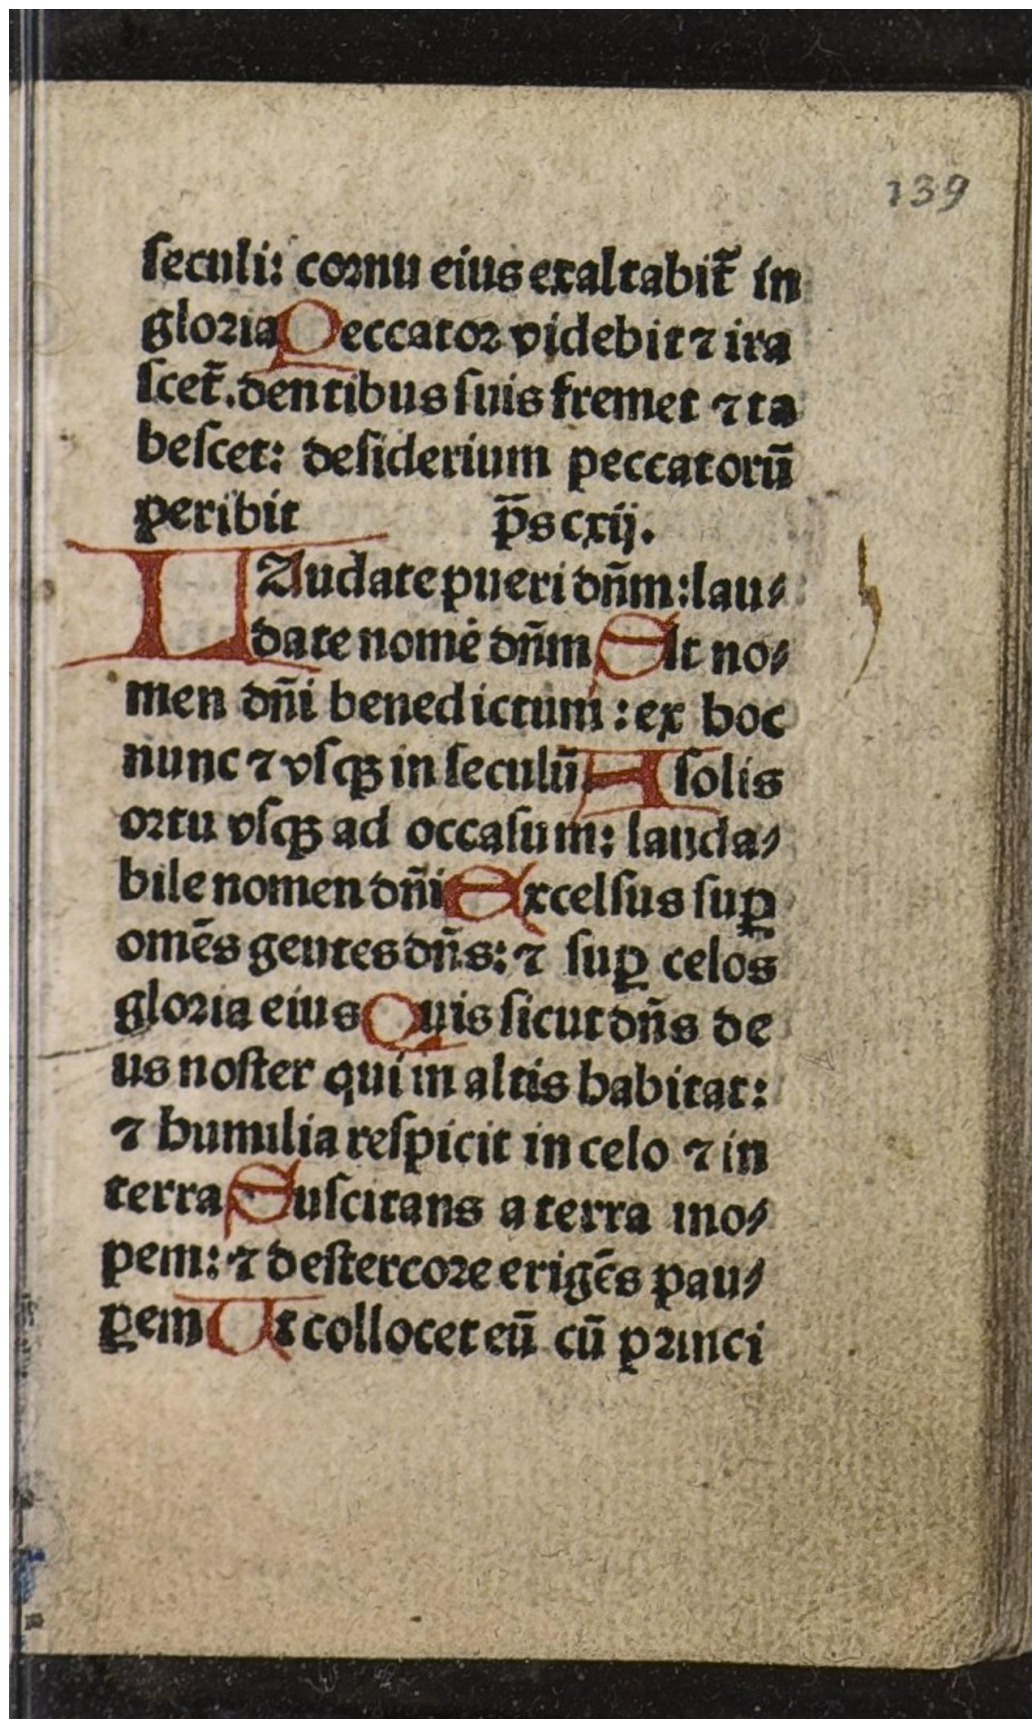 139
seculi: cornu eius exaltabit̄ in
gloria Peccator videbit ⁊ ira
scet̄. dentibus suis fremet ⁊ ta
bescet: desiderium peccatorū
peribit p̄s cxij.
LAudate pueri dn̄m: lau⸗
date nomē dn̄m Sit no⸗
men dn̄i benedictum: ex hoc
nunc ⁊ vsqꝫ in seculū A solis
ortu vsqꝫ ad occasum: lauda⸗
bile nomen dn̄i Excelsus suꝑ
omēs gentes dn̄s: ⁊ suꝑ celos
gloria eius Quis sicut dn̄s de
us noster qui in altis habitat:
⁊ humilia respicit in celo ⁊ in
terra Suscitans a terra ino⸗
pem: ⁊ de stercore erigēs pau⸗
ꝑem Ut collocet eū cū princi